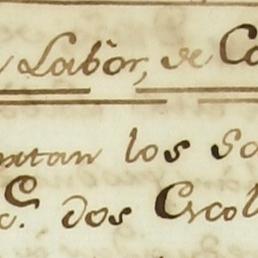 Labor, de Ca
ortan los So
C. dos Escol